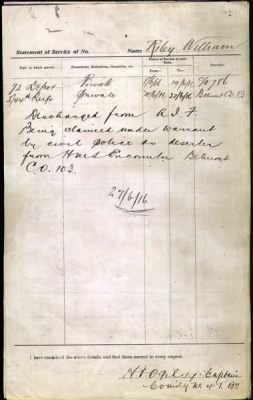 Statement of Service of No. Name Riley William
Unit in which served. Promotions, Reductions, Casualties, &c. Period of Service in each Rank.
From— To—
72 Depot Private 96786
Private 27/6/16 Belmont C.O. 83
Discharged from A I F
Being claimed under warrant
by civil police as deserter
from HMS Encounter Belmont
C.O. 103.
27/6/16
I have examined the above details, and find them correct in every respect.
Captain